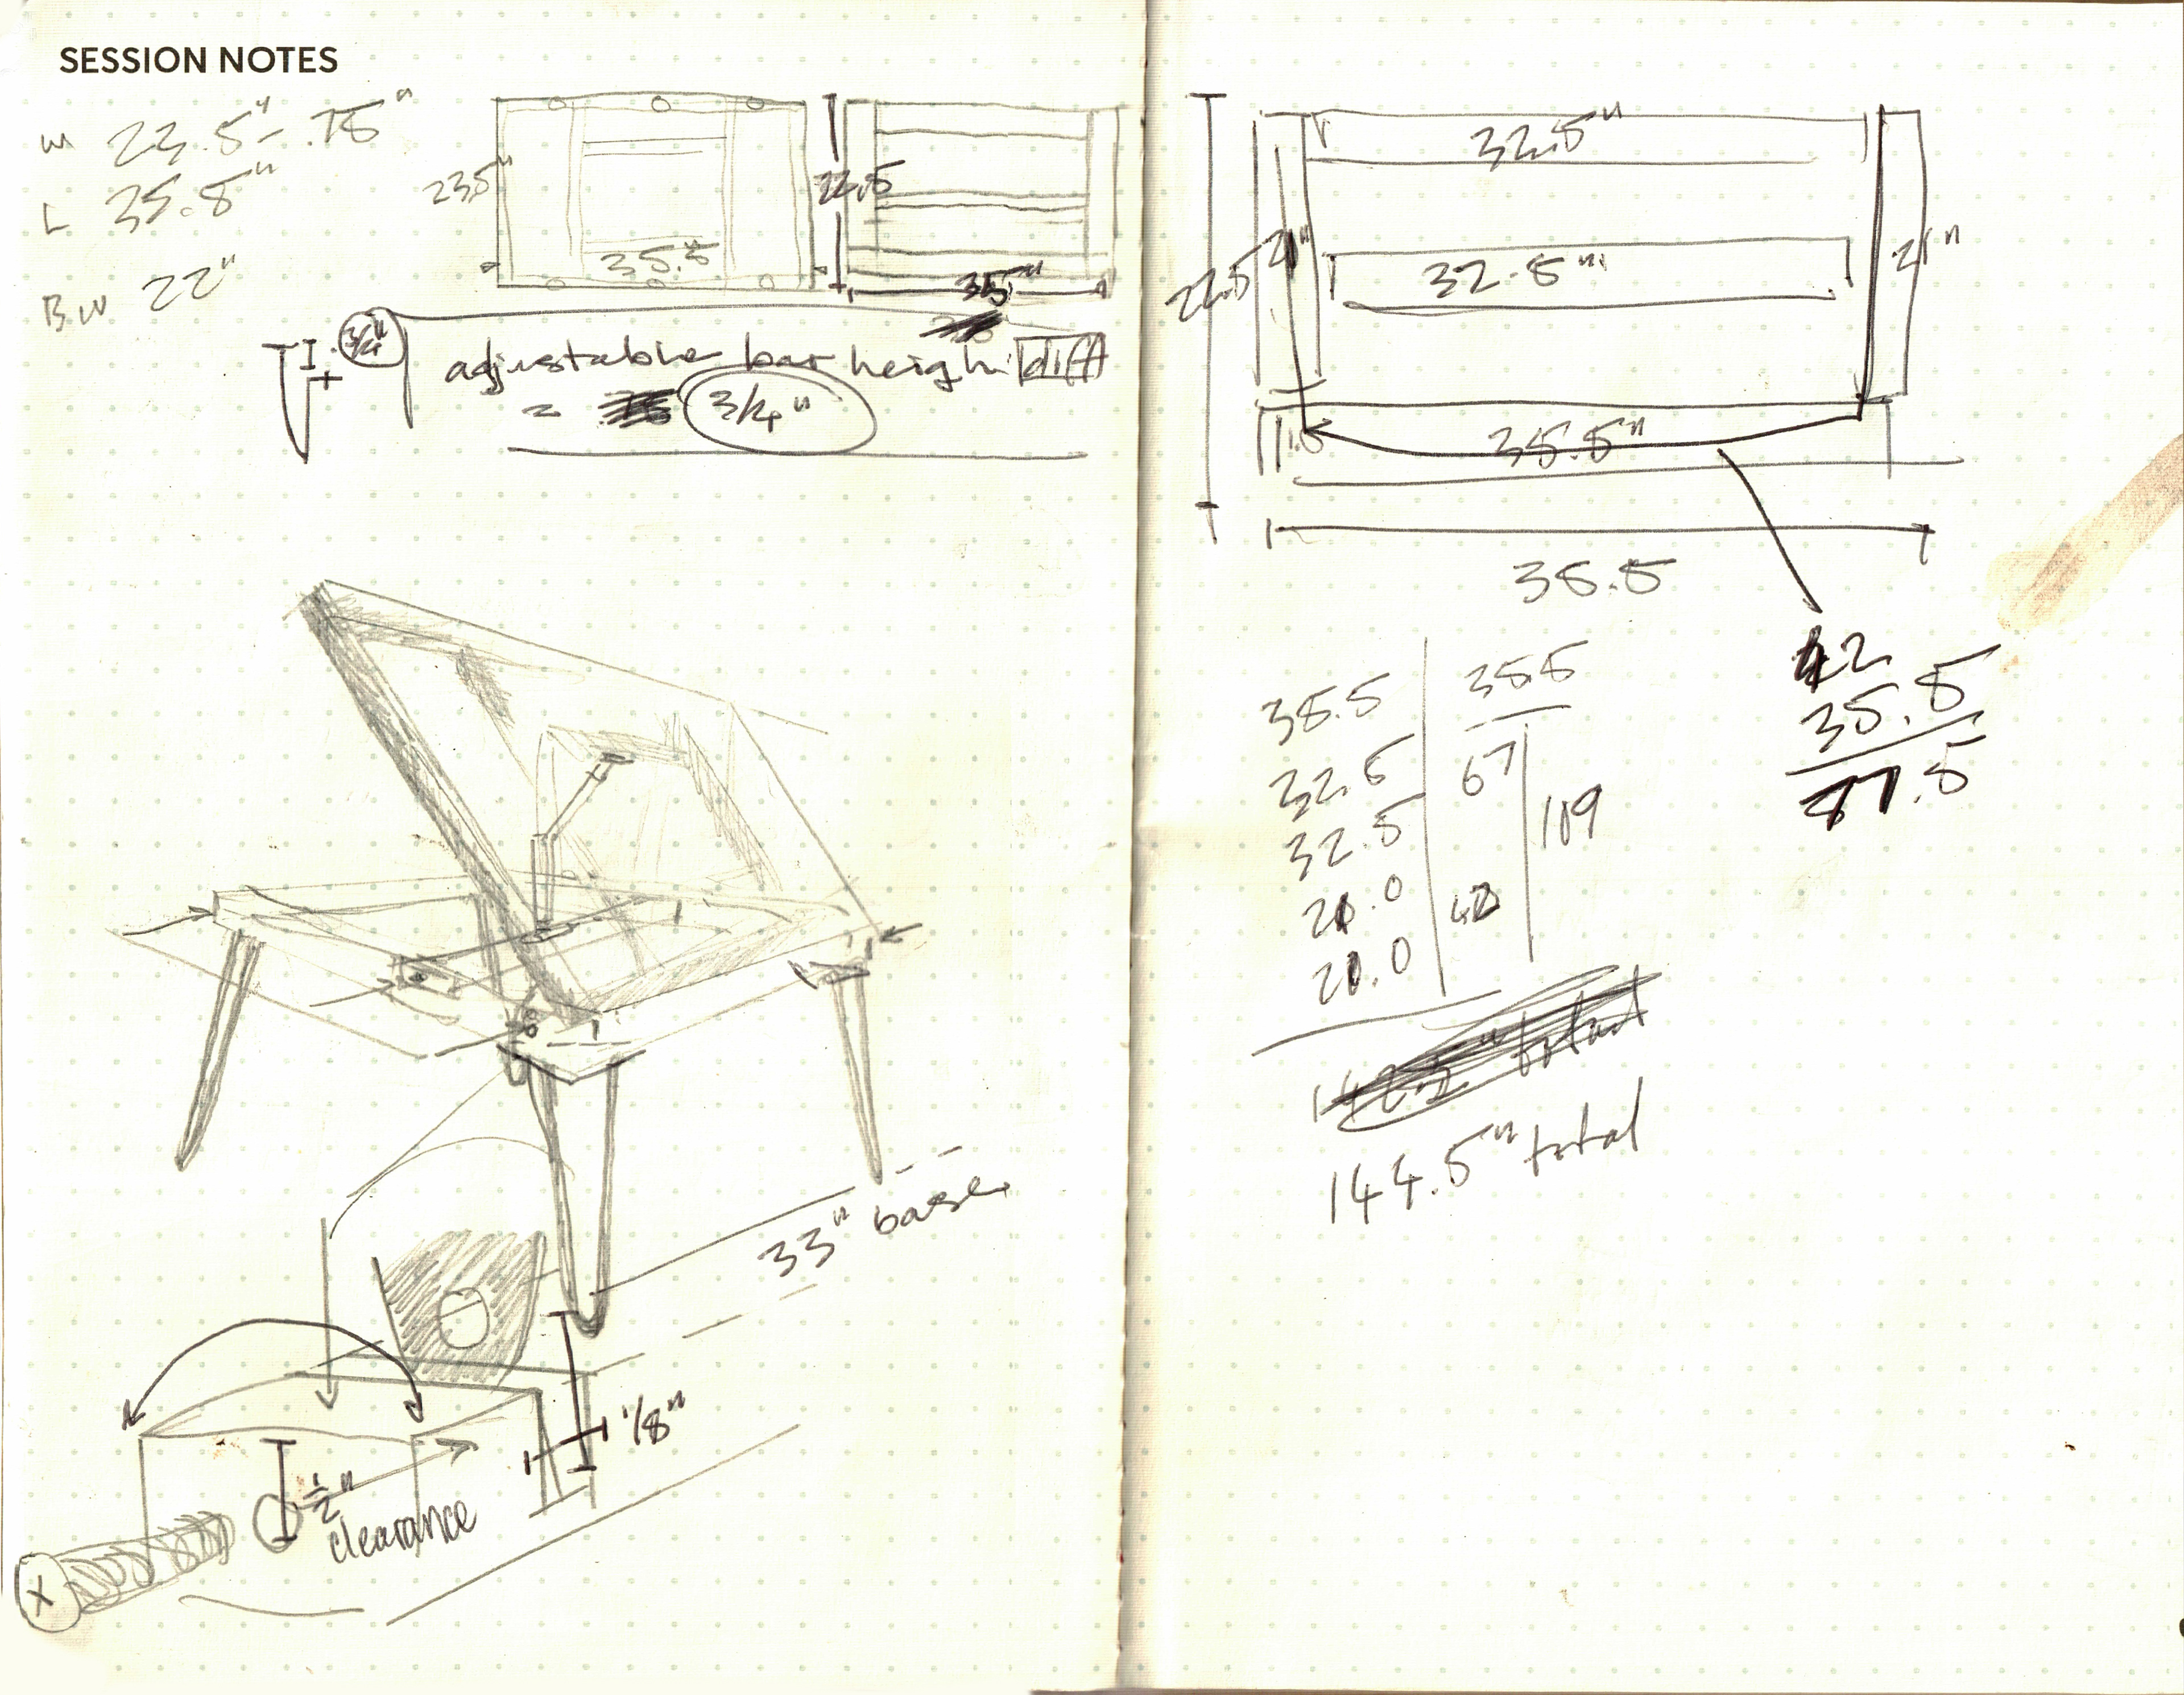 SESSION NOTES
W 23.5" - .75"
L 35.5"
BW 22"
23.5"
35.5
22.5
35"
3/4"
adjustable bar heigh diff
= 3/4"
33" base
1/8"
1/2"
clearance
X
32.5"
32.5"
22.5
21"
21"
1.5
35.5"
35.5
35.5
32.5
32.5
21.0
21.0
35.5
67
42
109
144.5" total
42
35.5
77.5